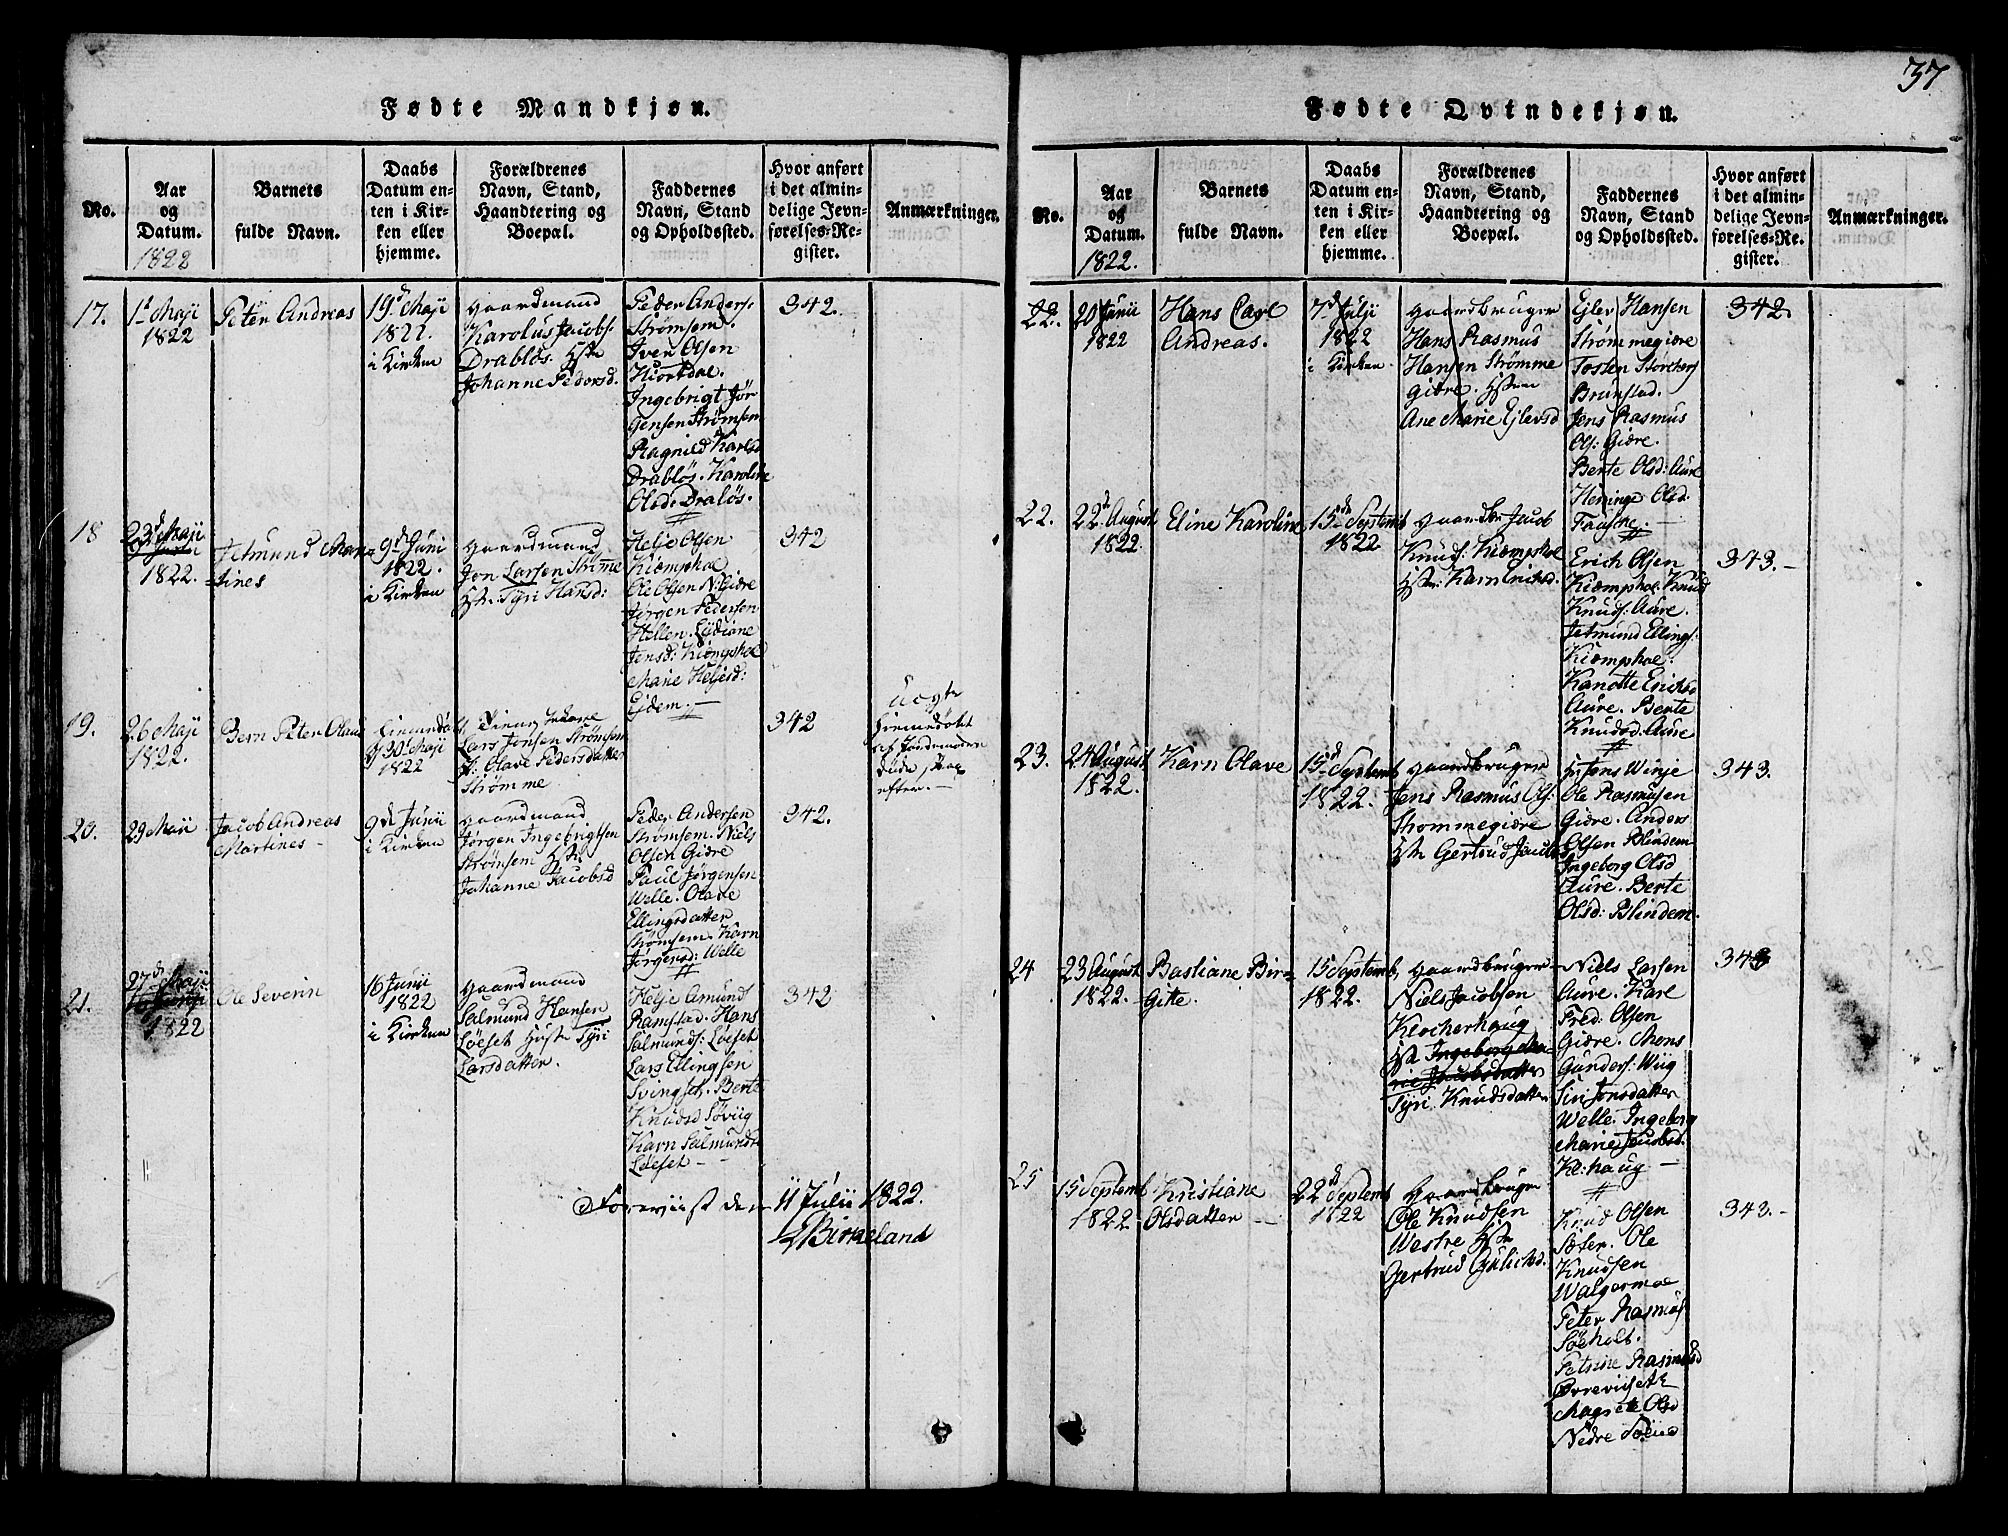 Fødte Mandkjøn.
No.
Aar
og
Datum.
1822
Barnets
fulde Navn.
Daabs
Datum en-
ten i Kir-
ken eller
hjemme.
Forældrenes
Navn, Stand,
Haandtering og
Boepæl.
Faddernes
Navn, Stand
og Opholdssted.
Hvor anført
i det almin-
delige Jevn-
førelses-Re-
gister.
Anmærkninger.
17.
1d Maji
1822
Peter Andreas
19d Maji
1822.
i Kirken
Gaardmand
Karolus Jacobs:
Drabløs. Hstr
Johanne Pedersd.
Peder Anders:
Strømsem.
Iver Olsen
Hiortdal.
Ingebrigt Jør
gensen Strømsem
Ragnild Karlsd
Drabløs. Karoline
Olsd: Drabløs.
342.
18
23d Maji
1822.
Jetmund Mar=
=tines
9d Juni
1822.
i Kirken
Gaardmand
Jon Larsen Strømme
Hstr: Tyri Hansd:
Helje Olsen
Kiæmphoe
Ole Olsen N: Giære
Jørgen Pedersen
Hellen. Lydiane
Jensd: Kiæmphoe
Marie Heljesd:
Ejdem. —
342
19.
26 Maji
1822.
Bern Peter Olaus
30 Maji
1822
Lars Jensen Strømsem
P: Olave Pedersdatter
Strømme
342
Uægte
Hiemdøbt
af Jordemoderen
døde strax
efter. —
20.
29 Maji
Jacob Andreas
Martines —
9d Junii
i Kirken
Gaardmand
Jørgen Ingebrigtsen
Strømsem Hstr
Johanne Jacobsd
Peder Andersen
Strømsem. Niels
Olsen Giære
Paul Jørgensen
Welle. Olave
Ellingsdatter
Strømsem. Karn
Jørgensd: Welle
342.
21.
27d Maji
1822
Ole Severin
16 Junii
1822
i Kirken
Gaardmand
Salmund Hansen
Løeset Hustr Tyri
Larsdatter.
Helje Amund
Ramstad. Hans
Salmunds: Løeset
Lars Ellingsen
Svingset. Berte
Knudsd Søviig
Karn Salmundsd
Løeset —
342
Foreviist den 11 Julii 1822.
Birkeland
37
Fødte Qvindekjøn.
No.
Aar
og
Datum.
1822.
Barnets
fulde Navn.
Daabs
Datum en-
ten i Kir-
ken eller
hjemme.
Forældrenes
Navn, Stand,
Haandtering og
Boepæl.
Faddernes
Navn, Stand
og Opholdssted.
Hvor anført
i det almin-
delige Jevn-
førelses-Re-
gister.
Anmærkninger.
22.
20 Junii
1822
Hans Carl
Andreas.
7d Julji
1822
i Kirken
Gaardbruger
Hans Rasmus
Hansen Strømme
giære. Hstr
Ane Marie Ejlevsd
Ejlev Hansen
Strømmegiære
Tosten Storchers
Brunstad.
Jens Rasmus
Ols: Giære.
Berte Olsd: Aure
Heninge Olsd.
Fauske. —
342.
22.
22d August
1822.
Eline Karoline
15d Septemb
1822
Gaardbr Jacob
Knuds: Kiæmphoe
Hstr: Karn Eriksd.
Erich Olsen
Kiæmphoe. Knud
Knuds: Aure.
Jetmund Ellings:
Kiæmphoe.
Kanotte Eriksd
Aure. Berte
Knudsd: Aure
343. —
23.
24 August
1822.
Karn Olave
15d Septemb
1822.
Gaardbruger
Jens Rasmus Ols:
Strømmegiære
Hstr Gertrud Jacobsd
Hr Jens Winje
Ole Rasmusen
Giære. Anders
Olsen Blindem
Ingeborg Olsd
Aure. Berte
Olsd: Blindem.
343.
24
23 August
1822. —
Bastiane Bir=
gitte.
15 Septemb,
1822.
Gaardbruger
Niels Jacobsen
Klocherhaug
Hstr Ingeborg Ma=
rie Jacobsdatter
Tyri Knudsdatter
Niels Larsen
Aure. Karl
Fred: Olsen
Giære. Mons
Gunders: Wiig
Siri Jonsdatter
Welle. Ingeborg
Marie Jacobsd.
Kl: haug —
343
25
15 Septemb
1822
Kristiane
Olsdatter —
22d Septemb
1822
Gaardbruger
Ole Knudsen
Westre Hstr
Gertrud Gulichsd.
Knud Olsen
Sæter. Ole
Knudsen
Walgermoe
Peter Rasmus
Søeholt.
Petrine Rasmusd
Øvreviiset
Magrete Olsd
Nedre
343. —